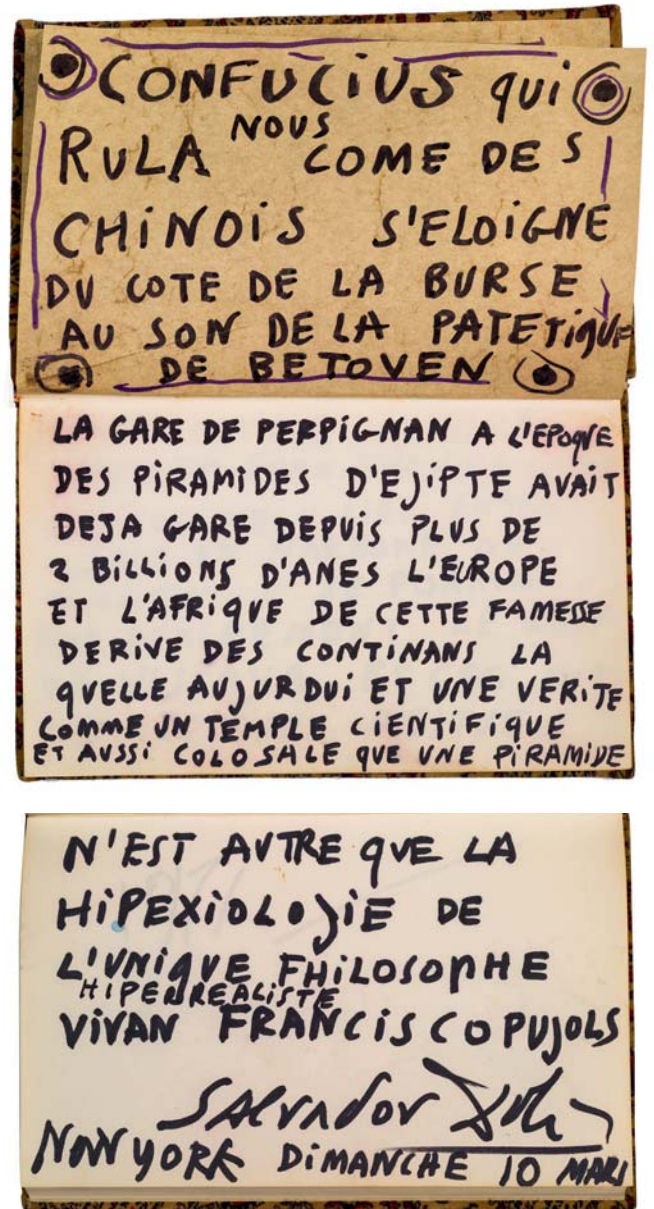 CONFUCIUS qui
RULA NOUS COME DES
CHINOIS S'ELOIGNE
DU COTE DE LA BURSE
AU SON DE LA PATETIQUE
DE BETOVEN
LA GARE DE PERPIGNAN A L'EPOQVE
DES PIRAMIDES D'EJIPTE AVAIT
DEJA GARE DEPUIS PLUS DE
2 BILLIONS D'ANES L'EUROPE
ET L'AFRIQVE DE CETTE FAMESSE
DERIVE DES CONTINANS LA
QVELLE AUJURDUI ET UNE VERITE
COMME UN TEMPLE CIENTIFIQUE
ET AUSSI COLOSALE QUE UNE PIRAMIDE
N'EST AUTRE QUE LA
HIPEXIOLOJIE DE
L'UNIQVE FHILOSOPHE
HIPERREALISTE
VIVAN FRANCISCO PUJOLS
SALVADOR Dali
NAN YORK DIMANCHE 10 MARS